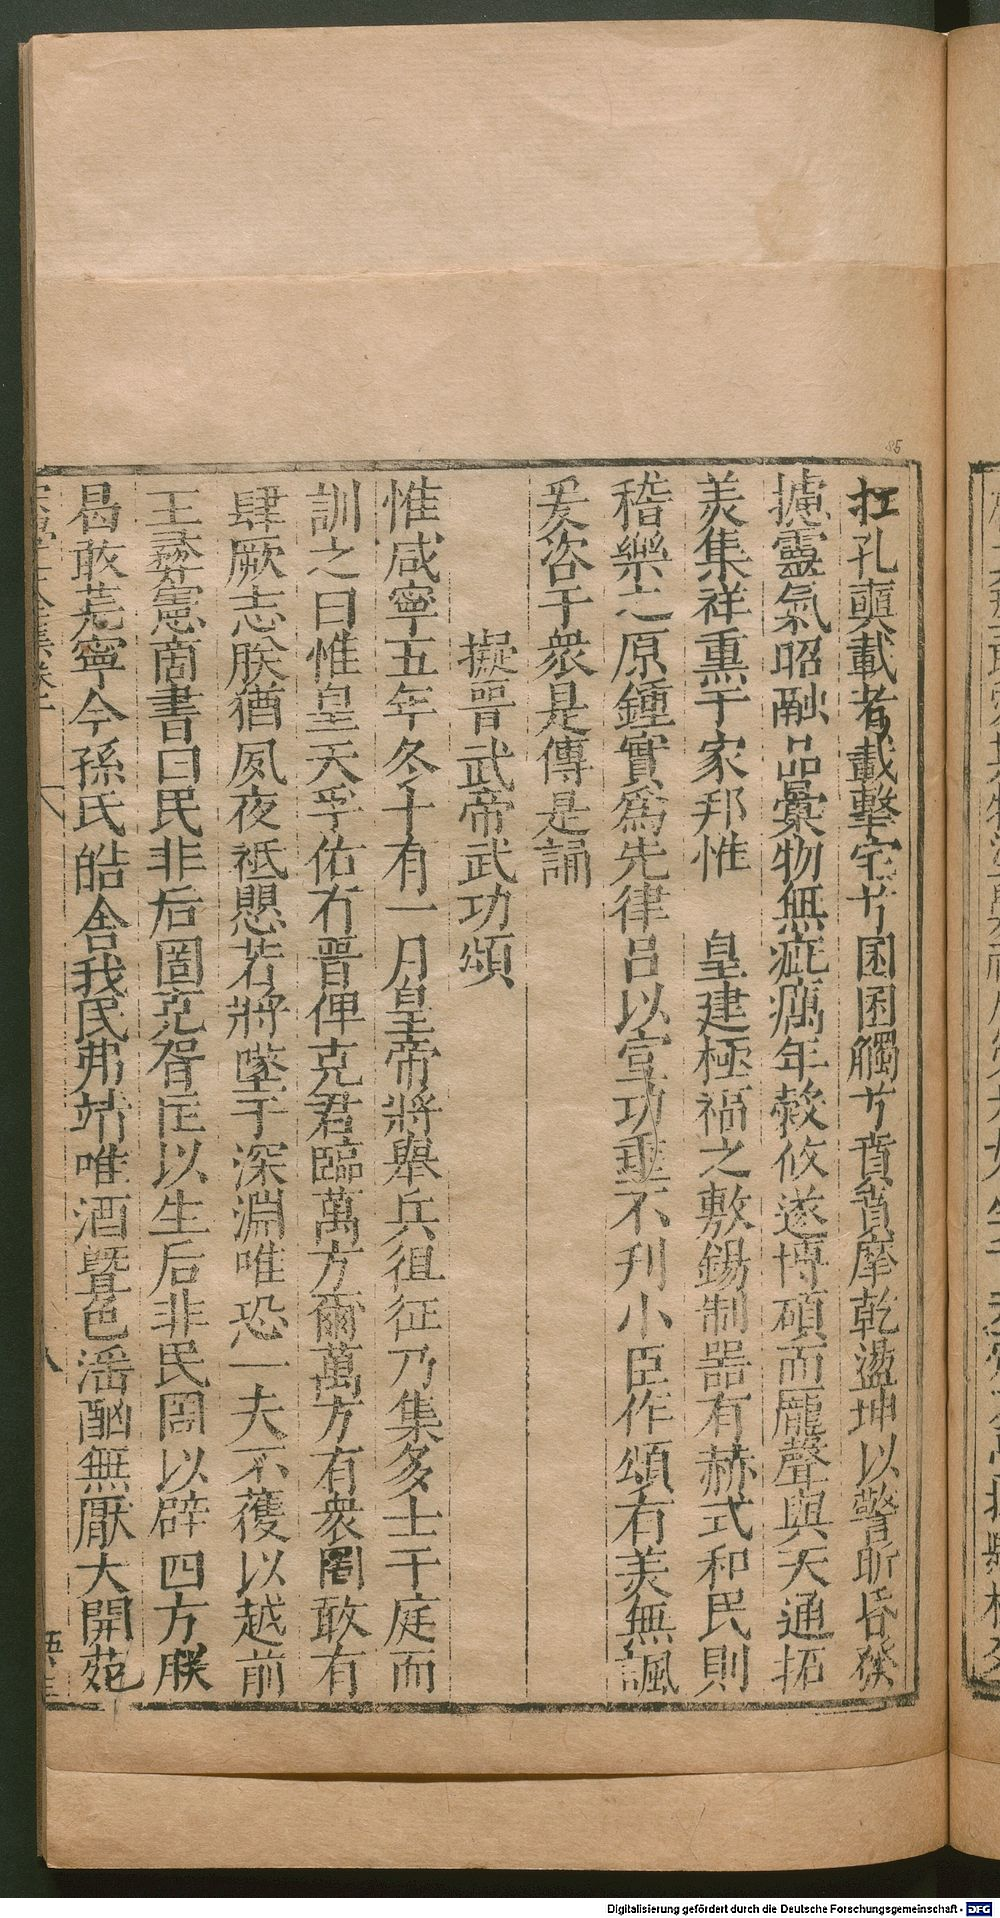 扛孔奭載者載擊宅兮困困觸兮賁賁摩乾盪坤以警昕昏發
攄靈氣昭融品彙物無疵癘年穀攸遂博碩而龐聲與天通拓
美集祥熏于家邦惟　皇建極福之敷錫制器有赫式和民則
稽樂之原鍾實為先律呂以宣功垂不刊小臣作頌有美無諷
爰咨于衆是傳是誦
擬晉武帝武功頌
惟咸寧五年冬十有一月皇帝將舉兵徂征乃集多士于庭而
訓之曰惟皇天孚佑有晉俾克君臨萬方爾萬方有衆罔敢有
肆厥志朕猶夙夜祗懼若將墜于深淵唯恐一夫不獲以越前
王彞憲商書曰民非后罔克胥匡以生后非民罔以辟四方朕
曷敢荒寧今孫氏皓舍我民弗靖唯酒曁色湎酗無厭大開苑
85
Digitalisierung gefördert durch die Deutsche Forschungsgemeinschaft - DFG